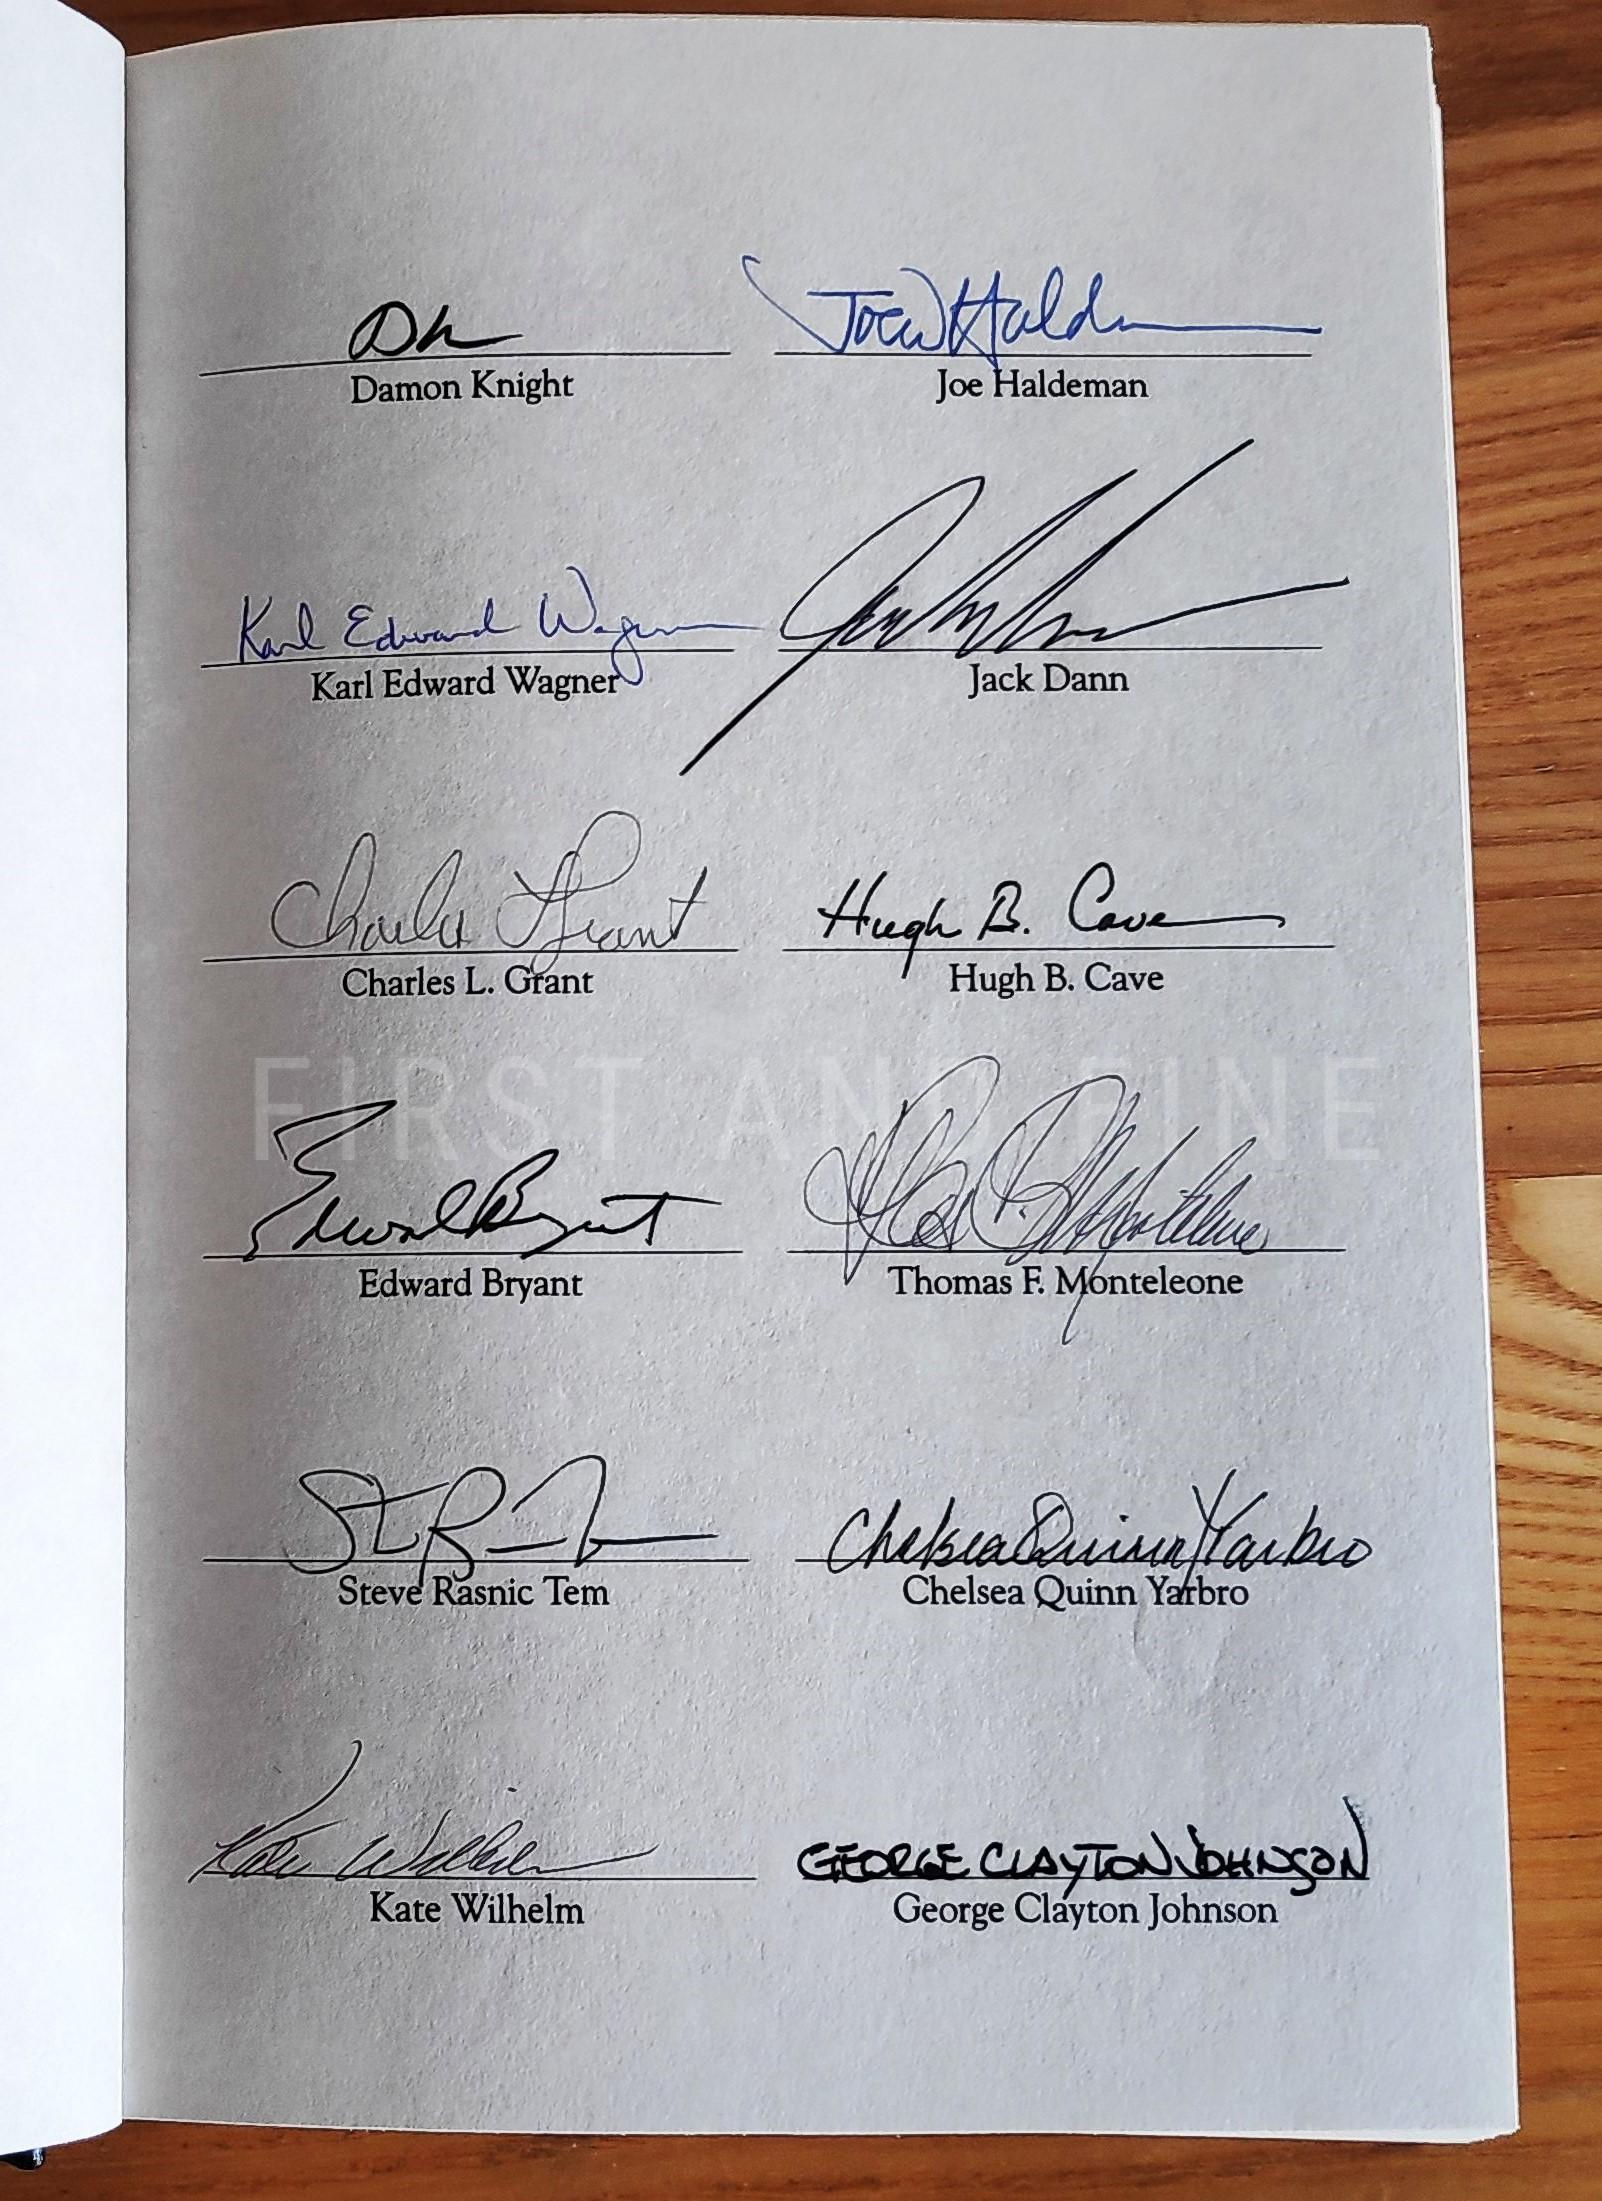 Damon Knight
Joe W Haldeman
Joe Haldeman
Karl Edward Wagner
Karl Edward Wagner
Jack Dann
Charles L Grant
Charles L. Grant
Hugh B. Cave
Hugh B. Cave
FIRST AND FINE
Edward Bryant
Edward Bryant
Thomas F. Monteleone
Steve Rasnic Tem
Chelsea Quinn Yarbro
Chelsea Quinn Yarbro
Kate Wilhelm
Kate Wilhelm
GEORGE CLAYTON JOHNSON
George Clayton Johnson